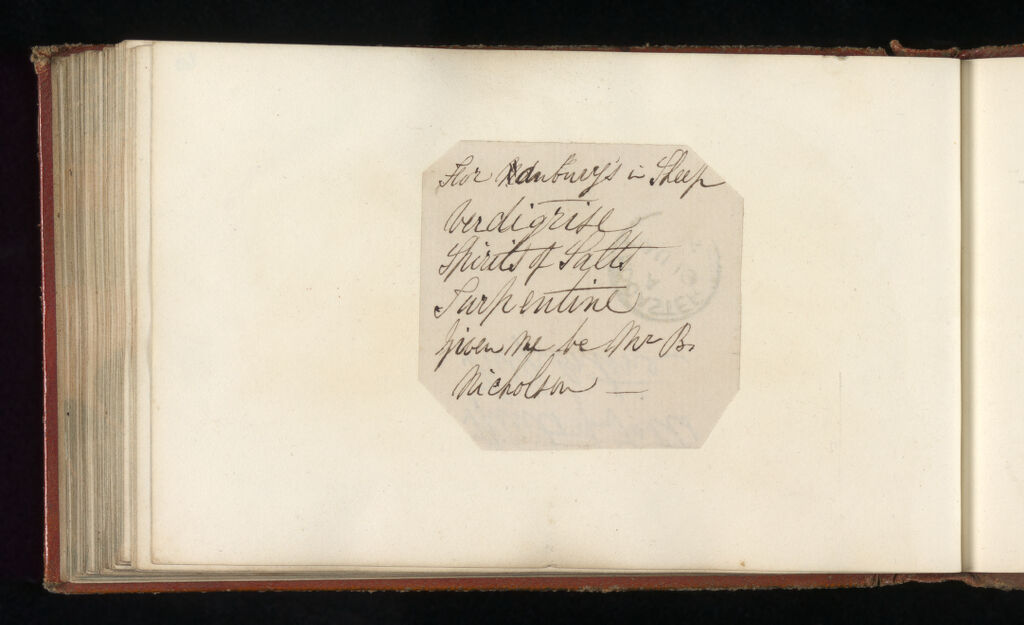 For in Sheep
Verdigrise
Spirits of Salts
Turpentine
Given Me be Mr B.
Nicholson —